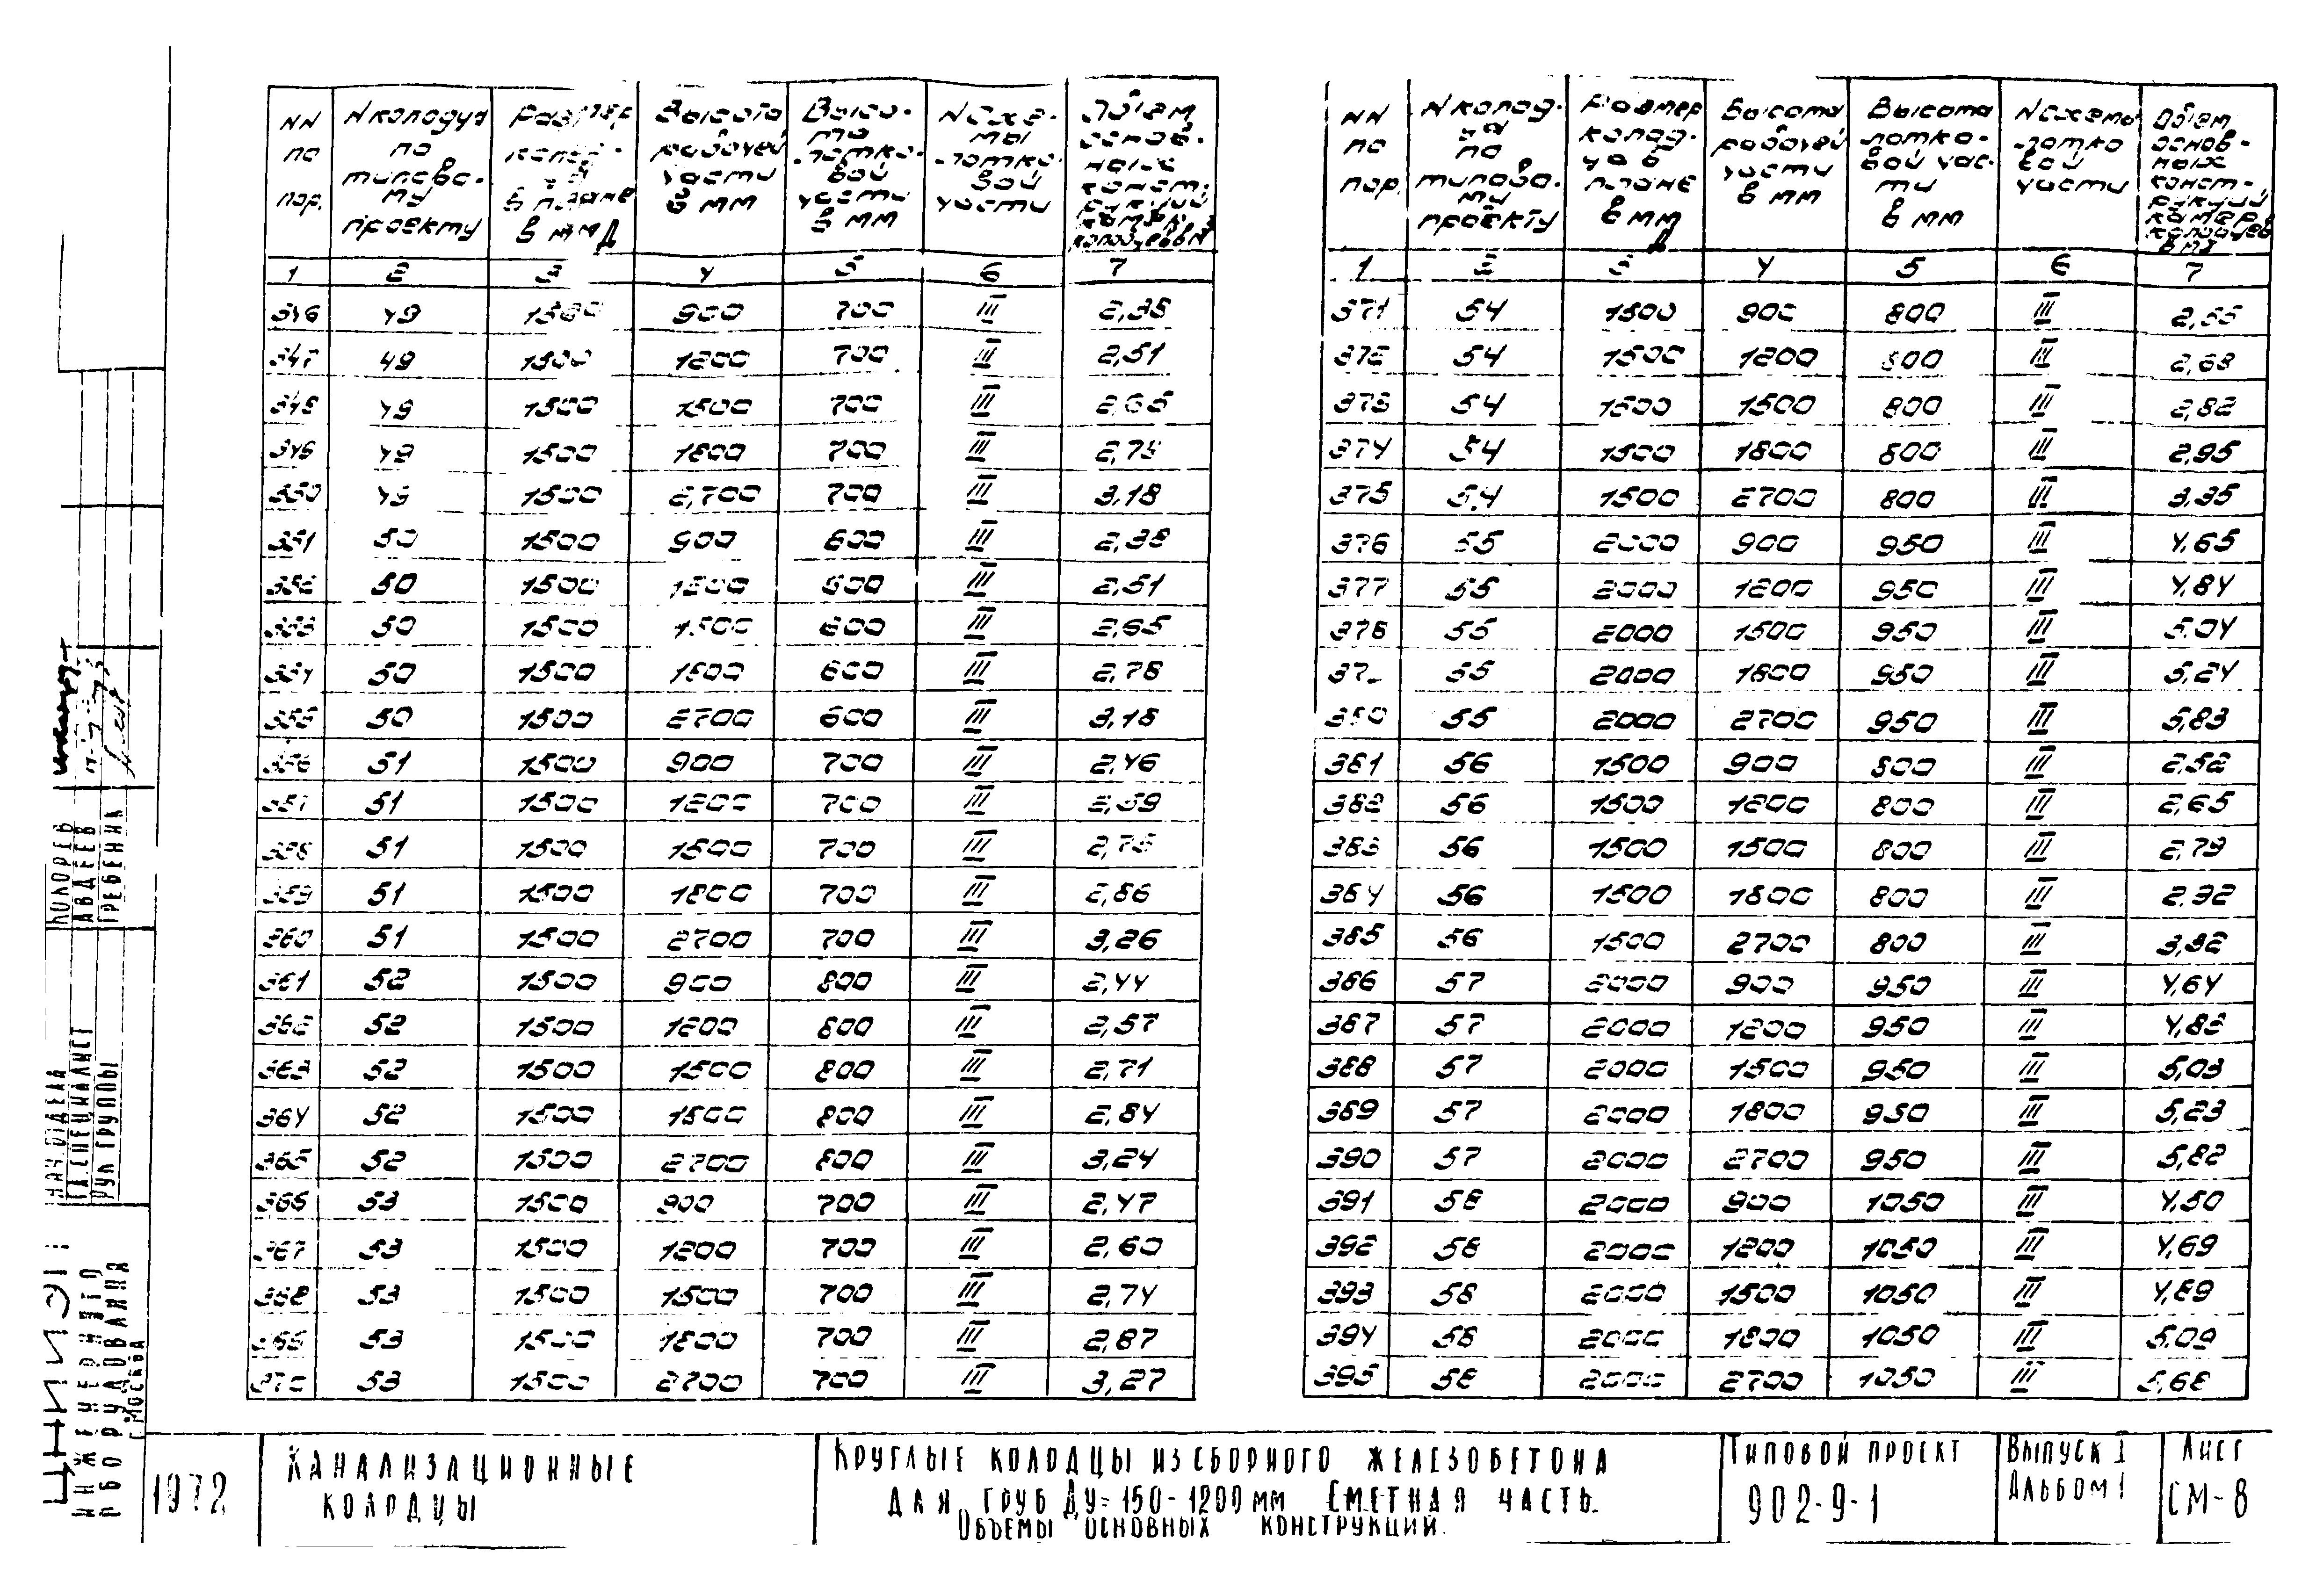 NN по пор. | N колодца по типово- му проекту | Размер колод- ца в плане в мм Д | Высота рабочей части в мм | Высо- та лотко- вой части в мм | N схе- мы лотко- вой части | Объем основ- ных конст- рукций камер, колодцев в м3
1 2 3 4 5 6 7
346 49 1500 900 700 III 2,38
347 49 1500 1200 700 III 2,51
348 49 1500 1500 700 III 2,65
349 49 1500 1800 700 III 2,78
350 49 1500 2700 700 III 3,18
351 50 1500 900 600 III 2,38
352 50 1500 1200 600 III 2,51
353 50 1500 1500 600 III 2,65
354 50 1500 1800 600 III 2,78
355 50 1500 2700 600 III 3,18
356 51 1500 900 700 III 2,46
357 51 1500 1200 700 III 2,59
358 51 1500 1500 700 III 2,73
359 51 1500 1800 700 III 2,86
360 51 1500 2700 700 III 3,26
361 52 1500 900 800 III 2,44
362 52 1500 1200 800 III 2,57
363 52 1500 1500 800 III 2,71
364 52 1500 1800 800 III 2,84
365 52 1500 2700 800 III 3,24
366 53 1500 900 700 III 2,47
367 53 1500 1200 700 III 2,60
368 53 1500 1500 700 III 2,74
369 53 1500 1800 700 III 2,87
370 53 1500 2700 700 III 3,27
NN по пор. | N колод- ца по типово- му проекту | Размер колод- ца в плане в мм Д | Высота рабочей части в мм | Высота лотко- вой час- ти в мм | N схемы лотко вой части | Объем основ- ных конст- рукций камер, колодцев в м3
1 2 3 4 5 6 7
371 54 1500 900 800 III 2,55
372 54 1500 1200 800 III 2,68
373 54 1500 1500 800 III 2,82
374 54 1500 1800 800 III 2,95
375 54 1500 2700 800 III 3,35
376 55 2000 900 950 III 4,65
377 55 2000 1200 950 III 4,84
378 55 2000 1500 950 III 5,04
37 55 2000 1800 950 III 5,24
380 55 2000 2700 950 III 5,83
381 56 1500 900 800 III 2,52
382 56 1500 1200 800 III 2,65
383 56 1500 1500 800 III 2,79
384 56 1500 1800 800 III 2,92
385 56 1500 2700 800 III 3,32
386 57 2000 900 950 III 4,64
387 57 2000 1200 950 III 4,83
388 57 2000 1500 950 III 5,03
389 57 2000 1800 950 III 5,23
390 57 2000 2700 950 III 5,82
391 58 2000 900 1050 III 4,50
392 58 2000 1200 1050 III 4,69
393 58 2000 1500 1050 III 4,89
394 58 2000 1800 1050 III 5,09
395 58 2000 2700 1050 III 5,68
НАЧ ОТДЕЛА
ГЛ. СПЕЦИАЛИСТ АВДЕЕВ
РУК ГРУППЫ ГРЕБЕННИК
ЦНИИЭП
ИНЖЕНЕРНОГО
ОБОРУДОВАНИЯ
Г. МОСКВА
1972
КАНАЛИЗАЦИОННЫЕ
КОЛОДЦЫ
КРУГЛЫЕ КОЛОДЦЫ ИЗ СБОРНОГО ЖЕЛЕЗОБЕТОНА
ДЛЯ ТРУБ ДУ=150-1200 ММ СМЕТНАЯ ЧАСТЬ.
ОБЪЕМЫ ОСНОВНЫХ КОНСТРУКЦИЙ.
ТИПОВОЙ ПРОЕКТ
902-9-1
ВЫПУСК I
АЛЬБОМ I
ЛИСТ
СМ-8